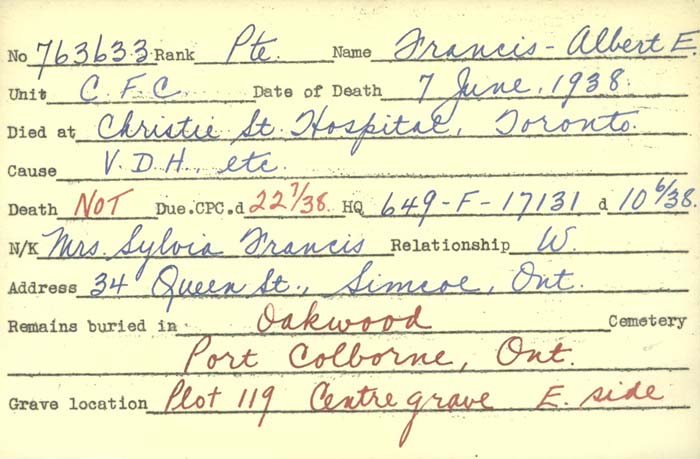 No 763633 Rank Pte. Name Francis - Albert E.
Unit C.F.C. Date of Death 7 June, 1938.
Died at Christie St. Hospital, Toronto.
Cause V.D.H., etc.
Death NOT Due.CPC.d 22 7/38. HQ 649-F-17131 d 10 6/38.
N/K Mrs. Sylvia Francis Relationship W.
Address 34 Queen St., Simcoe, Ont.
Remains buried in Oakwood Cemetery
Port Colborne, Ont.
Grave location Plot 119 Centre grave E. side